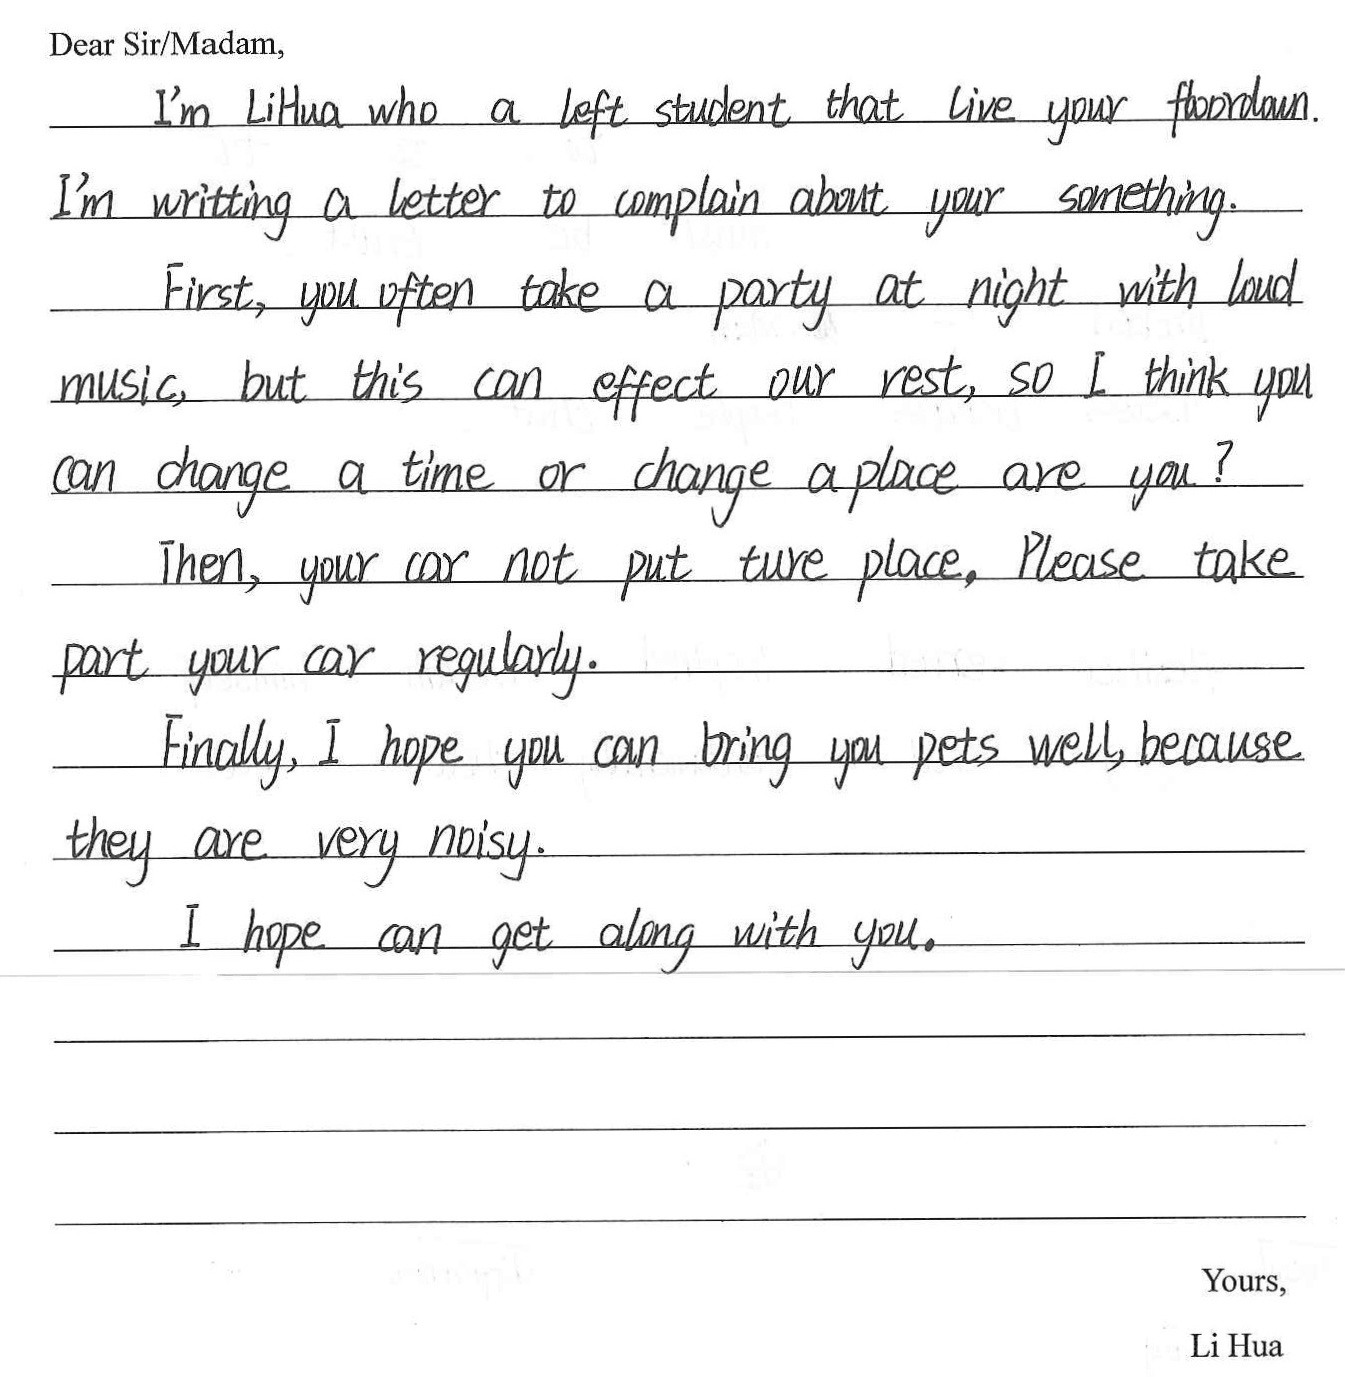 Dear Sir/Madam,
I'm LiHua who a left student that live your floordown.
I'm writting a letter to complain about your something.
First, you often take a party at night with loud
music, but this can effect our rest, so I think you
can change a time or change a place are you?
Then, your car not put ture place. Please take
part your car regularly.
Finally, I hope you can bring you pets well, because
they are very noisy.
I hope can get along with you.
Yours,
Li Hua